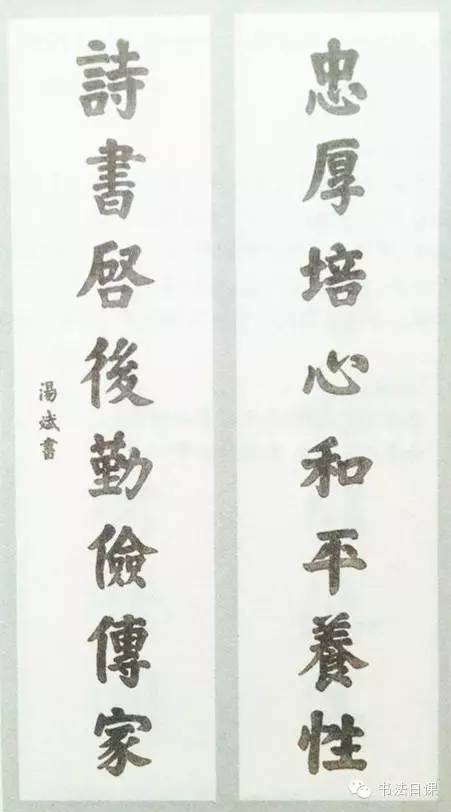 忠厚培心和平養性
詩書啓後勤儉傳家
湯斌書
书法日课